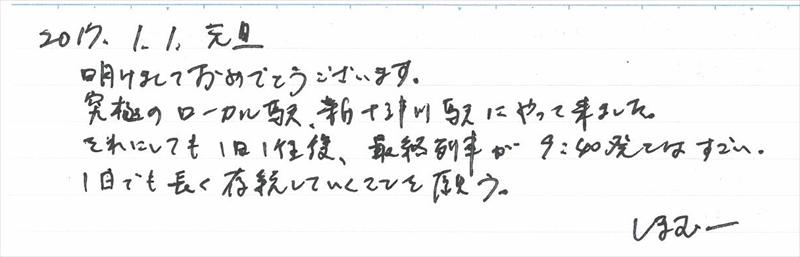 2017. 1. 1. 元旦
明けましておめでとうございます。
究極のローカル駅、新十津川駅にやって来ました。
それにしても1日1往復、最終列車が9:40発とはすごい。
1日でも長く存続していくことを願う。
しまむー